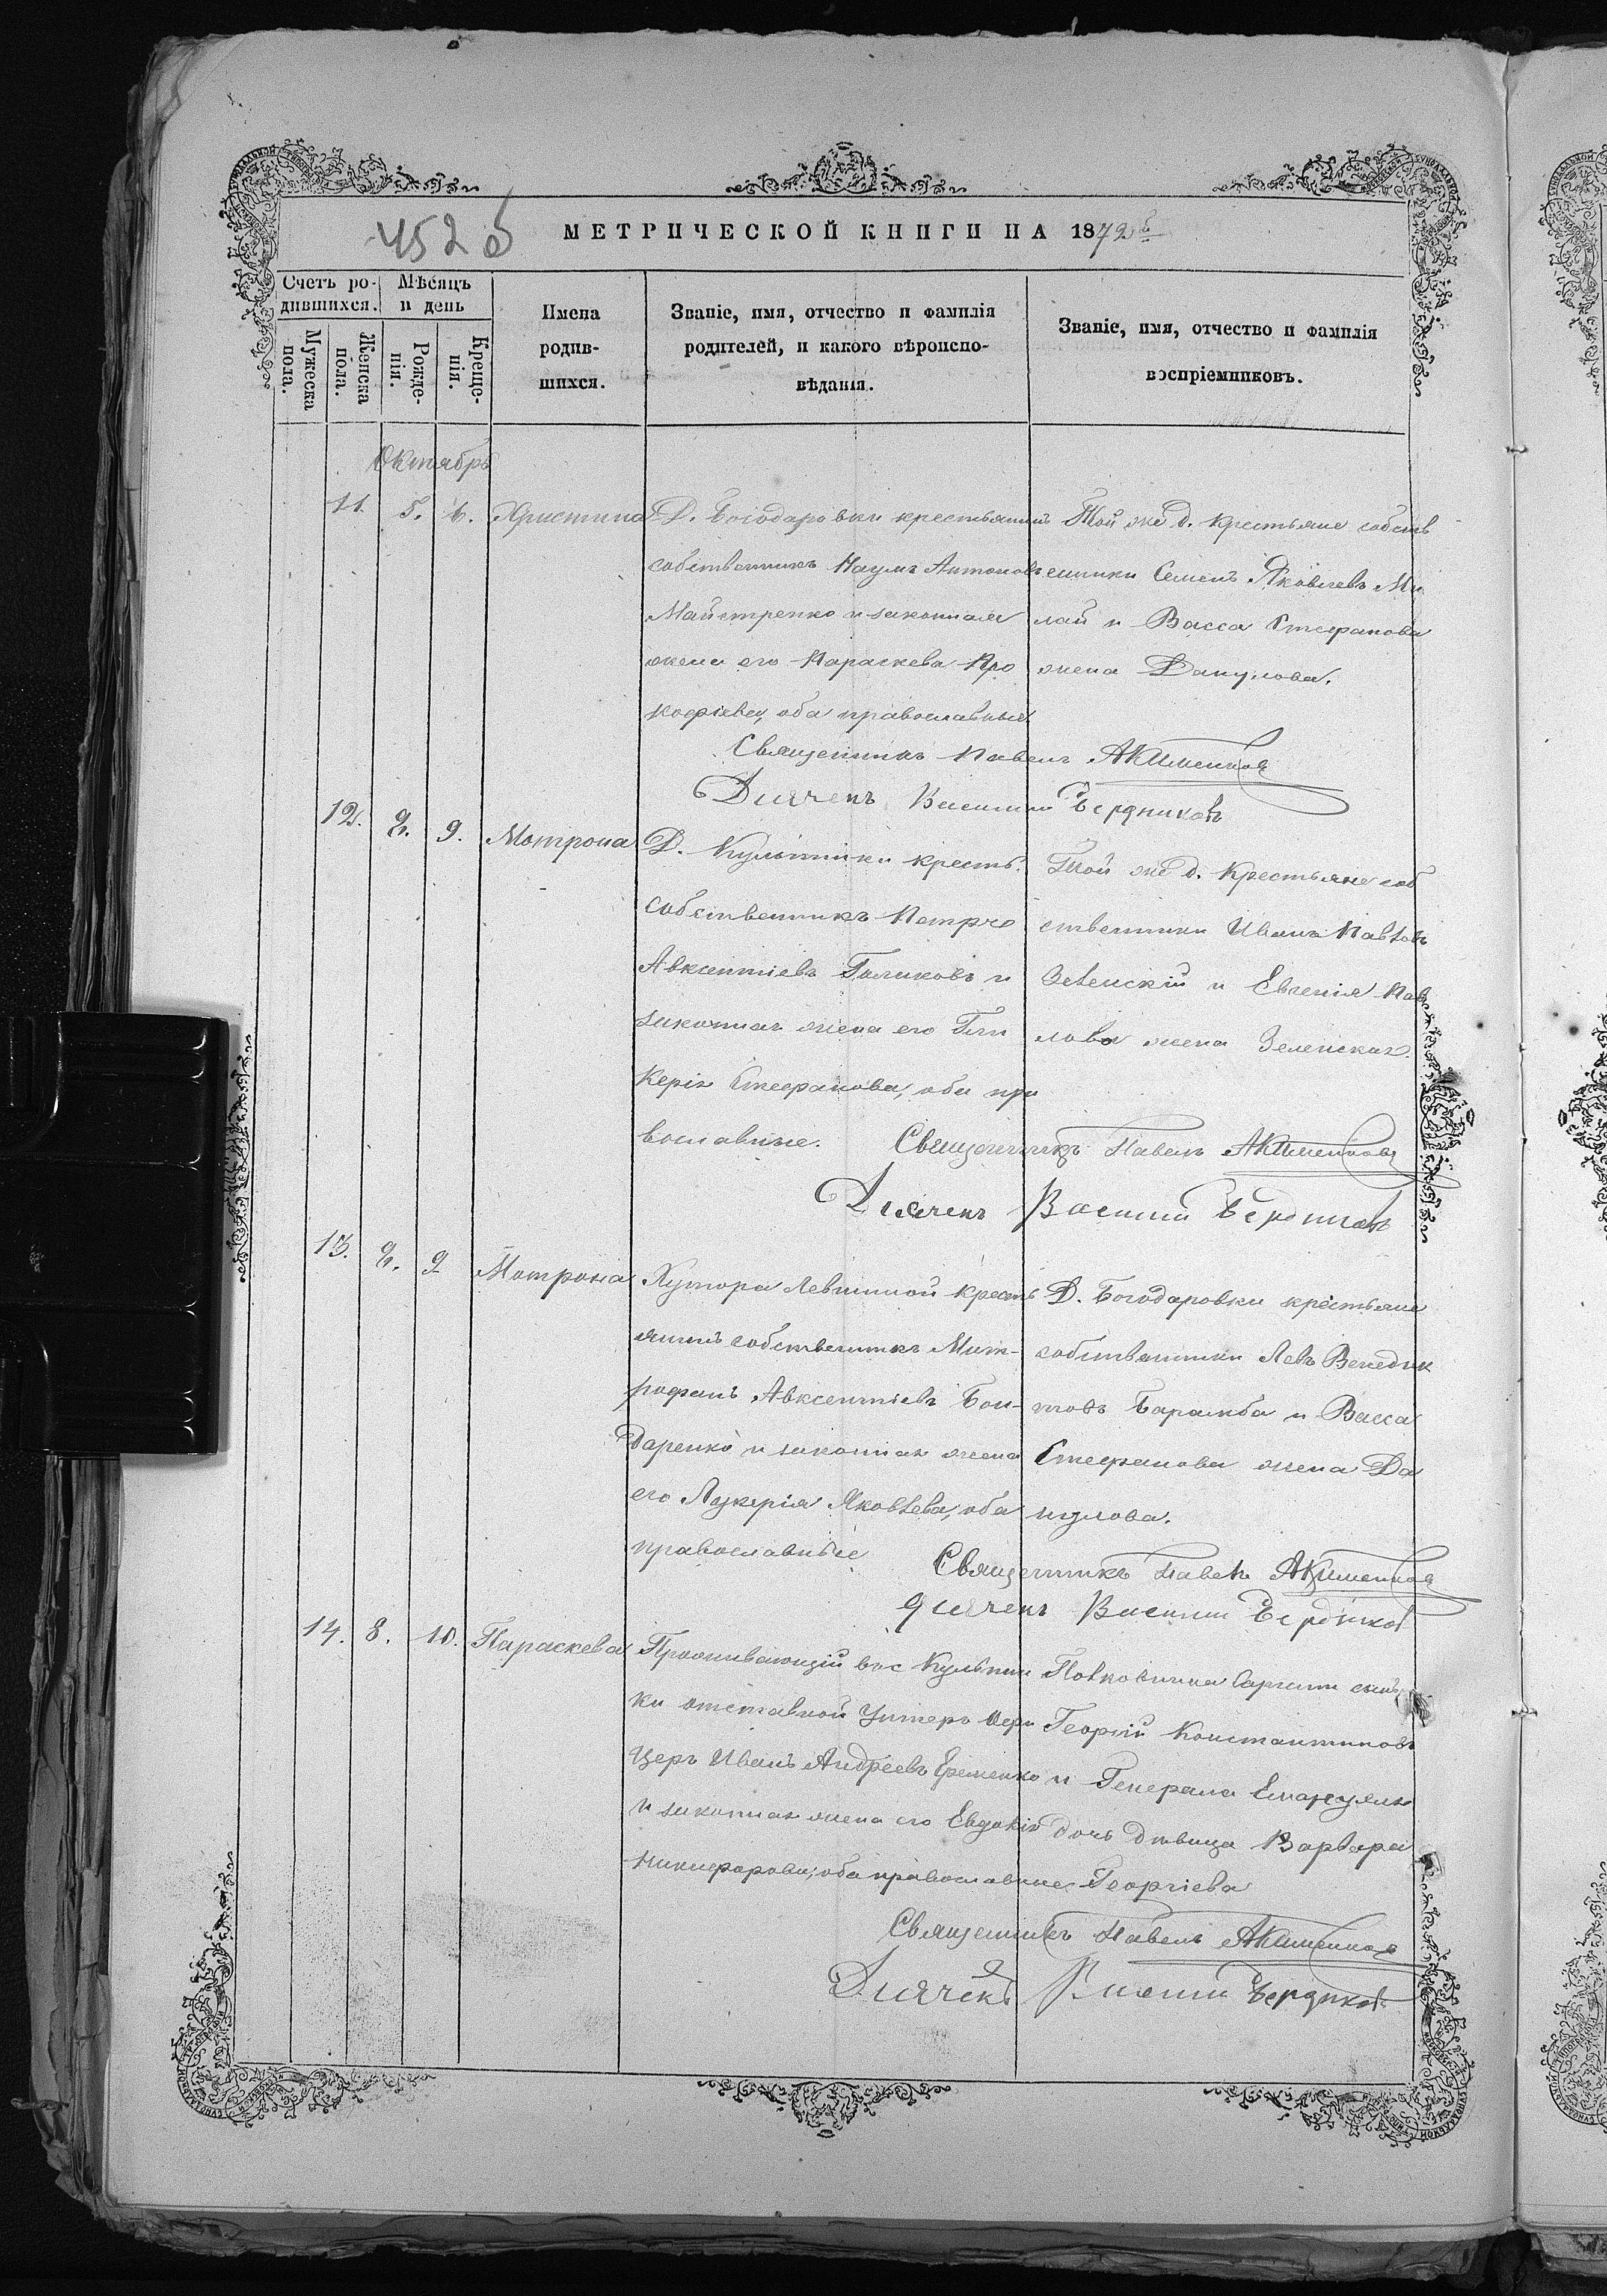 452 об
МЕТРИЧЕСКОЙ КНИГИ НА 1872 г.
Счетъ ро-
дившихся.
Мужеска
пола.
Женска
пола.
Мѣсяцъ
и день
Рожде-
нія.
Креще-
нія.
Имена
родив-
шихся.
Званіе, имя, отчество и фамилія
родителей, и какого вѣроиспо-
вѣданія.
Званіе, имя, отчество и фамилія
воспріемниковъ.
Октябрь
11. 5. 6. Христина
Д. Богодаровки крестьянинъ
собственникъ Наумъ Антоновъ
Майстренко и законная
жена его Параскева Про
кофіева, оба православные
Той же д. крестьяне собств
енники Семенъ Яковлевъ Ми
лай и Васса Стефанова
жена Данулова.
Священникъ Павелъ Акименковъ
Дьячекъ Василій Бердниковъ
12. 9. Матрона
Д. Культики крестьян.
собственникъ Петръ
Авксентіевъ Голиковъ и
законная жена его Гли
керія Стефанова, оба пра
вославные.
Той же д. Крестьяне соб
ственники Иванъ Павловъ
Зеленскій и Евгенія Пав
лова жена Зеленская.
Священникъ Павелъ Акименковъ
Дьячекъ Василій Бердниковъ
13. 9 Матрона
Хутора Левшиной Кресть
янинъ собственникъ Мит-
рофанъ Авксентіевъ Бон-
даренко и законная жена
его Лукерія Яковлева, оба
православные
Д. Богодаровки крестьяне
собственники Левъ Венедик
товъ Барамба и Васса
Стефанова жена Да
нулова.
Священникъ Павелъ Акименковъ
Дьячекъ Василій Бердниковъ
14. 8. 10. Параскева
Проживающій въ с Культи
ки отставной Унтеръ Офи
церъ Иванъ Андреевъ Еременко
и законная жена его Евдокія
Никифорова, оба православные
Полковника сынъ
Георгій Константиновъ
и Генерала
дочь дѣвица Варвара
Георгіева
Священникъ Павелъ Акименковъ
Дьячекъ Василій Бердниковъ